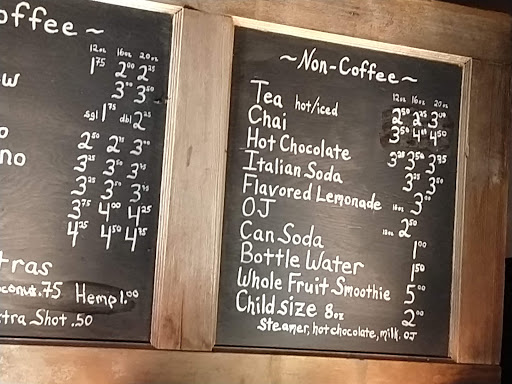 offee ~
12oz 16oz 20oz
1.75 2.00 2.25
3.00 3.50
sgl 1.75 dbl 2.25
2.50 2.75 3.00
no 3.25 3.50 3.75
3.25 3.50 3.75
3.75 4.00 4.25
4.25 4.50 4.75
tras
.75 Hemp 1.00
tra Shot .50
~ Non-Coffee ~
12oz 16oz 20oz
Tea hot/iced 2.50 2.75 3.00
Chai 3.50 4.00 4.50
Hot Chocolate 3.25 3.50 3.75
Italian Soda 3.25 3.50
Flavored Lemonade 16oz 3.00
OJ 2.50
Can Soda 1.00
Bottle Water 1.50
Whole Fruit Smoothie 5.00
Child size 8oz 2.00
Steamer, hot chocolate, milk, OJ